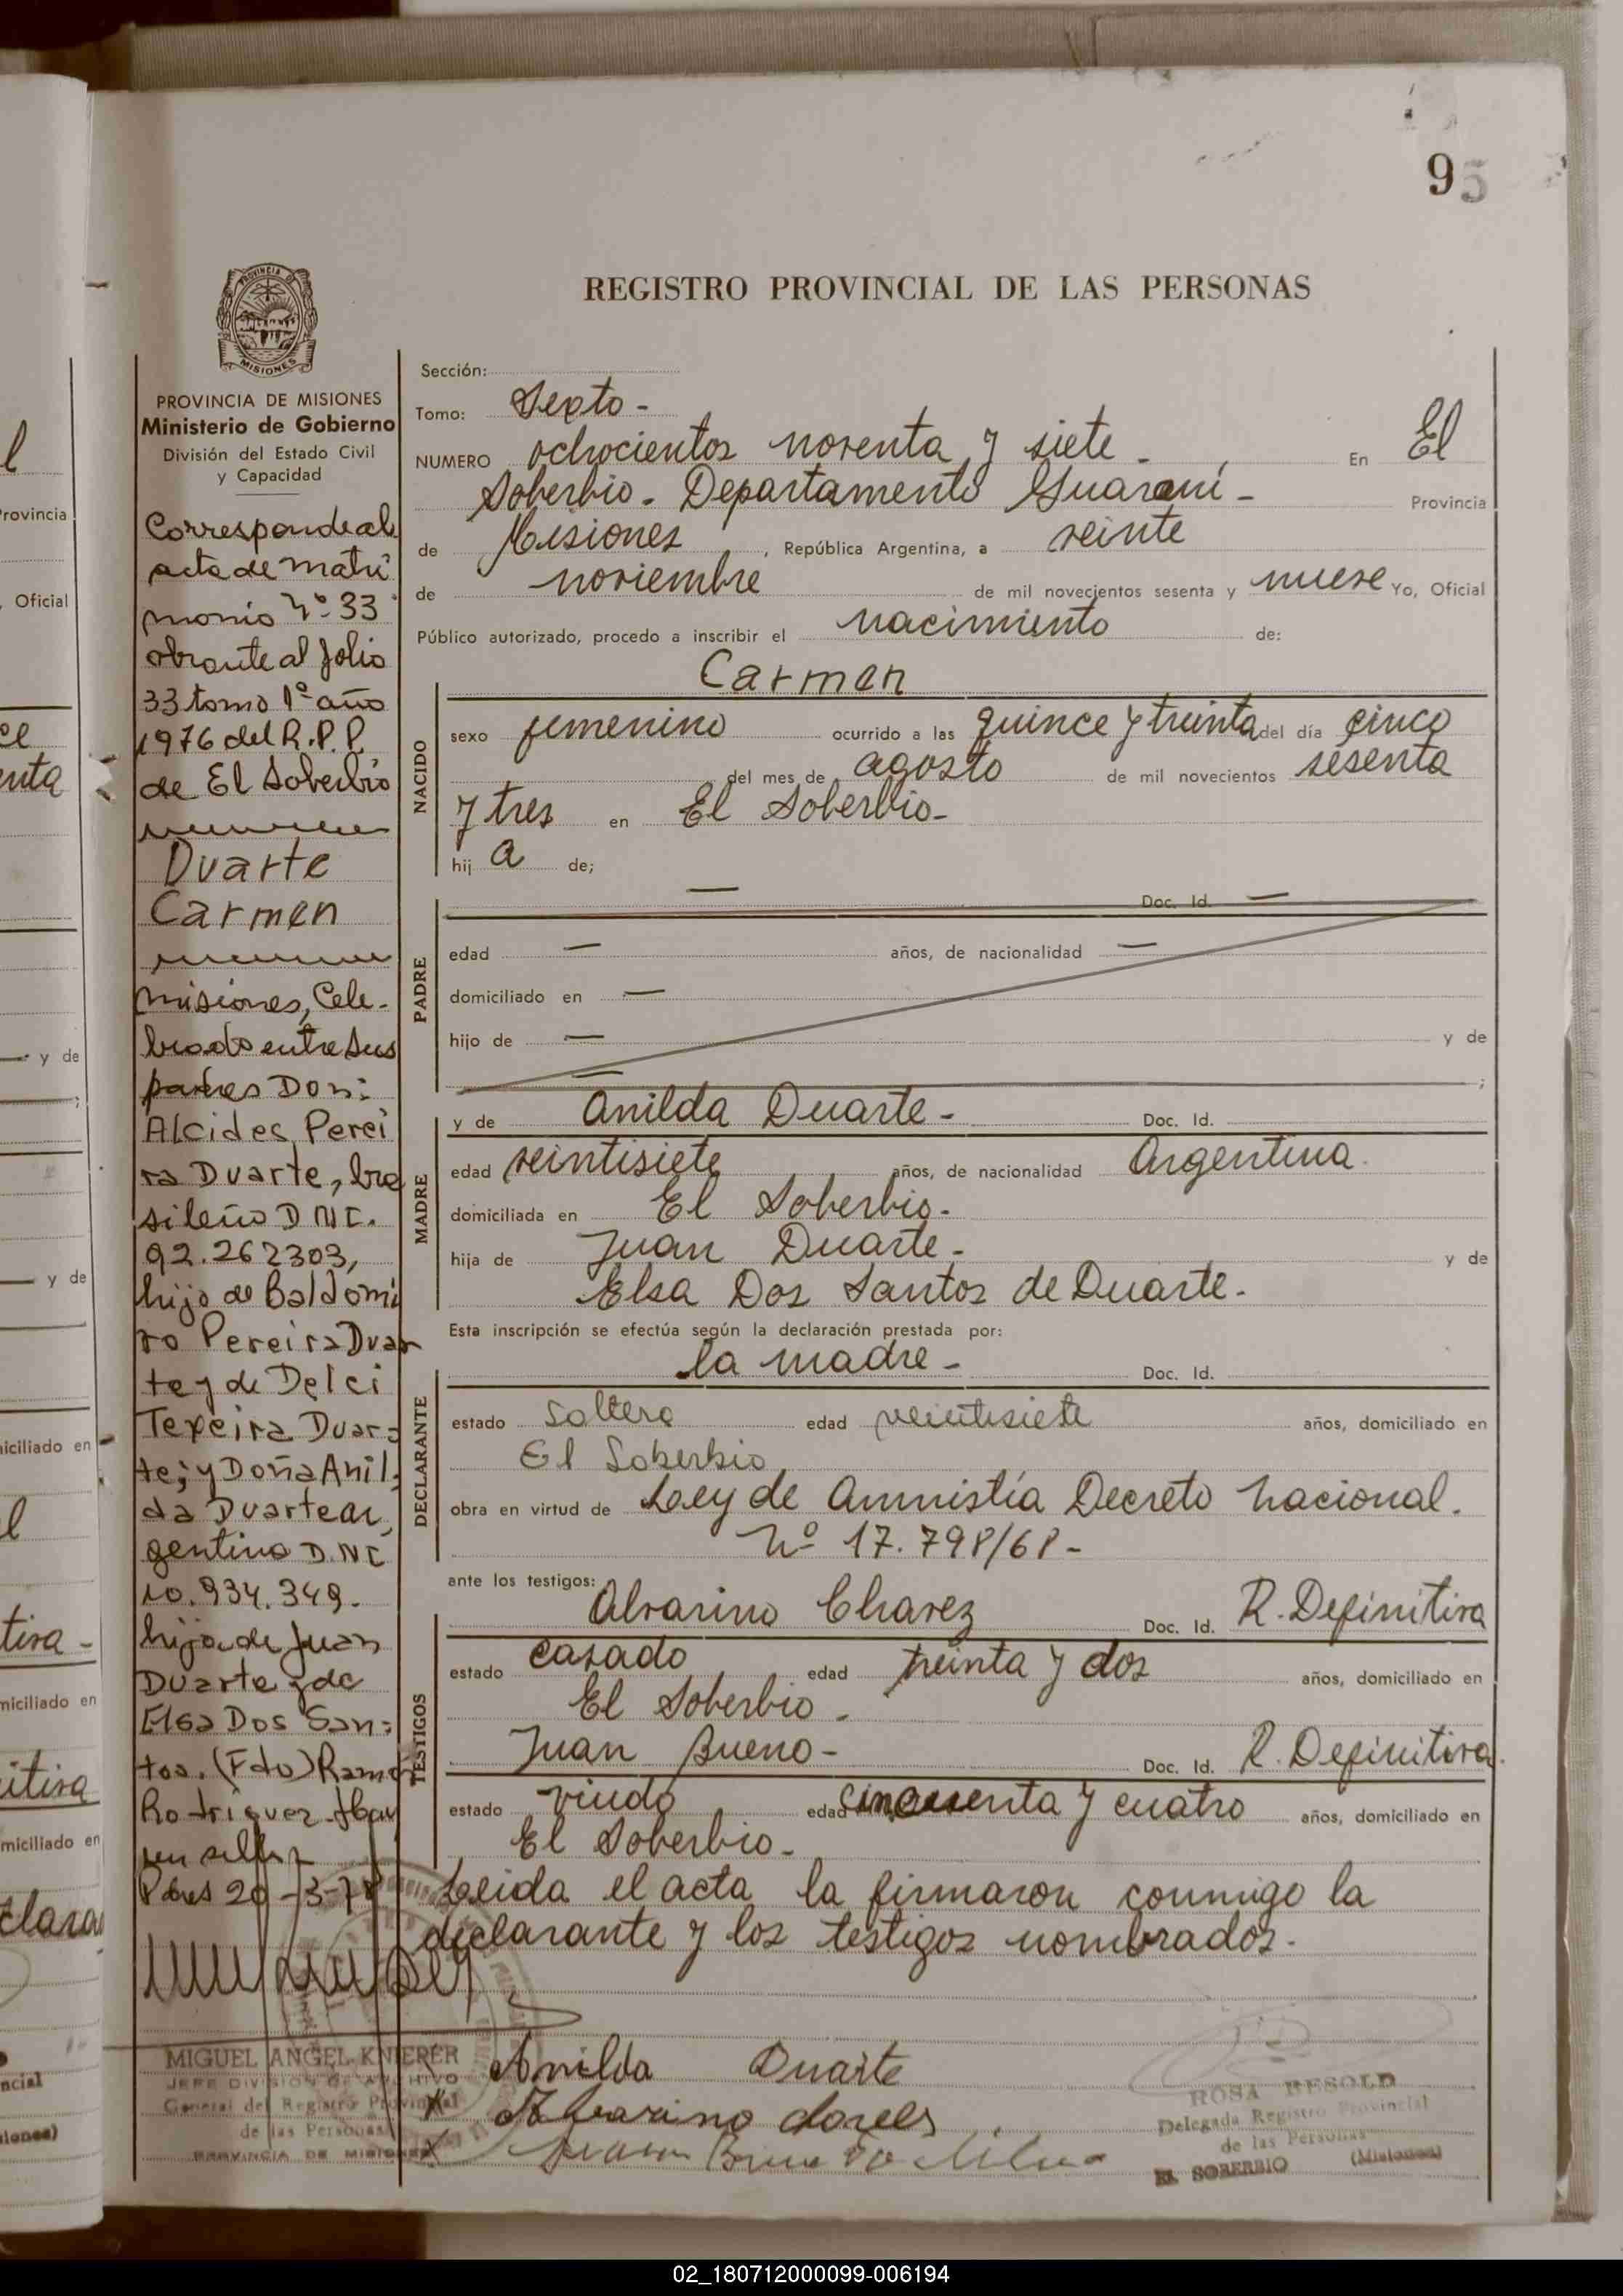 95
REGISTRO PROVINCIAL DE LAS PERSONAS
PROVINCIA DE MISIONES
Ministerio de Gobierno
División del Estado Civil
y Capacidad
Corresponde al
acta de matri
monio Nº 33
obrante al folio
33 tomo 1º año
1976 del R.P.P.
de El Soberbio
Duarte
Carmen
Misiones, Cele-
brado entre sus
padres Don:
Alcides Perei
ra Duarte, bra
sileño DNI.
92.262303,
hijo de Baldomi
ro Pereira Duar
te y de Delci
Texeira Duar-
te; y Doña Anil-
da Duarte ar
gentina D.NI
10.934.349.
hija de Juan
Duarte y de
Elsa Dos San-
tos. (Fdo) Ramón
Rodriguez. Hay
un sello
Pdas 20-3-78
MIGUEL ANGEL KNIERER
JEFE DIVISION DE ARCHIVO
General del Registro Provincial
de las Personas
PROVINCIA DE MISIONES
Sección:
Tomo: Sexto -
NUMERO ochocientos noventa y siete - En El
Soberbio - Departamento Guaraní - Provincia
de Misiones, República Argentina, a veinte
de noviembre de mil novecientos sesenta y nueve Yo, Oficial
Público autorizado, procedo a inscribir el nacimiento de:
NACIDO
Carmen
sexo femenino ocurrido a las quince y treinta del día cinco
del mes de agosto de mil novecientos sesenta
y tres en El Soberbio -
hij a de;
PADRE
— Doc. Id. —
edad — años, de nacionalidad —
domiciliado en —
hijo de — y de
— ;
MADRE
y de Anilda Duarte - Doc. Id.
edad veintisiete años, de nacionalidad Argentina.
domiciliada en El Soberbio -
hija de Juan Duarte - y de
Elsa Dos Santos de Duarte.
Esta inscripción se efectúa según la declaración prestada por:
DECLARANTE
la madre - Doc. Id.
estado Soltera edad veintisiete años, domiciliado en
El Soberbio
obra en virtud de Ley de Amnistía Decreto Nacional.
Nº 17.798/68 -
ante los testigos:
TESTIGOS
Alvarino Chavez Doc. Id. R. Definitiva
estado casado edad treinta y dos años, domiciliado en
El Soberbio -
Juan Bueno - Doc. Id. R. Definitiva.
estado viudo edad cincuenta y cuatro años, domiciliado en
El Soberbio -
Leida el acta la firmaron conmigo la
declarante y los testigos nombrados.
Anilda Duarte
ROSA BESOLD
Delegada Registro Provincial
de las Personas
EL SOBERBIO (Misiones)
rovincia
, Oficial
y de
y de
iciliado en
miciliado en
miciliado en
02_180712000099-006194